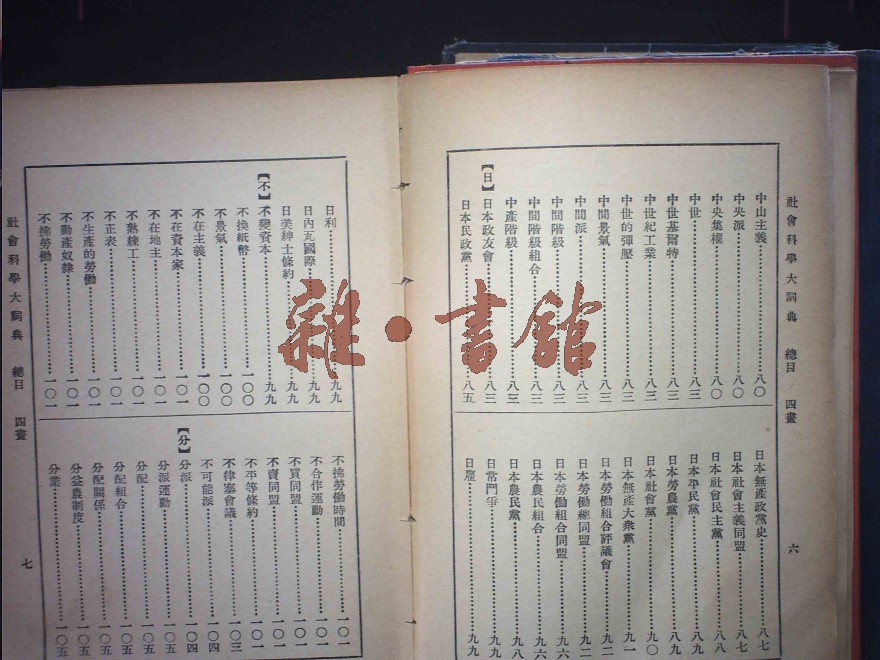 社會科學大詞典 總目 四畫 六
中山主義…八〇
中央派…八〇
中央集權…八〇
中世…八三
中世基爾特…八三
中世紀工業…八三
中世的彈壓…八三
中間景氣…八三
中間派…八三
中間階級…八三
中間階級組合…八三
中產階級…八三
【日】
日本政友會…八三
日本民政黨…八五
日本無產政黨史…八七
日本社會主義同盟…八七
日本社會民主黨…八八
日本平民黨…八九
日本勞農黨…八九
日本社會黨…九〇
日本無產大衆黨…九一
日本勞働組合評議會…九二
日本勞働總同盟…九二
日本勞働組合同盟…九六
日本農民組合…九六
日本農民黨…九八
日常鬥爭…九九
日塵…九九
日利…九九
日內瓦國際…九九
日美紳士條約…九九
【不】
不變資本…九九
不換紙幣…一〇〇
不景氣…一〇〇
不在主義…一〇〇
不在資本家…一〇一
不在地主…一〇一
不熟練工…一〇一
不正表…一〇一
不生產的勞働…一〇一
不動產奴隸…一〇一
不拂勞働…一〇一
不拂勞働時間…一〇一
不合作運動…一〇一
不買同盟…一〇一
不賣同盟…一〇一
不平等條約…一〇一
不律塞會議…一〇三
不可能派…一〇四
【分】
分派…一〇四
分派運動…一〇五
分配…一〇五
分配組合…一〇五
分配關係…一〇五
分益農制度…一〇五
分業…一〇五
社會科學大詞典 總目 四畫 七
雜·書館